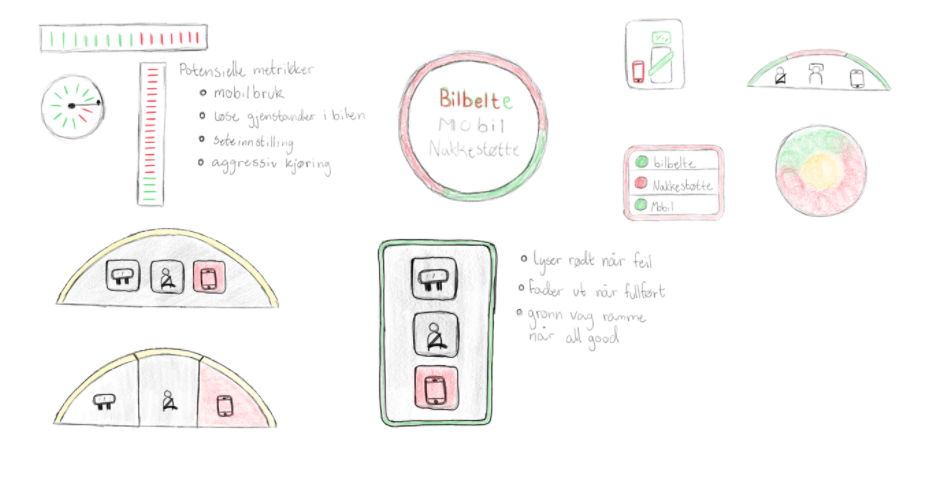 Potensielle metrikker
mobilbruk
løse gjenstander i bilen
seteinnstilling
aggressiv kjøring
Bilbelte
Mobil
Nakkestøtte
bilbelte
Nakkestøtte
Mobil
Lyser rødt når feil
fader ut når fullført
grønn vag ramme
når all good